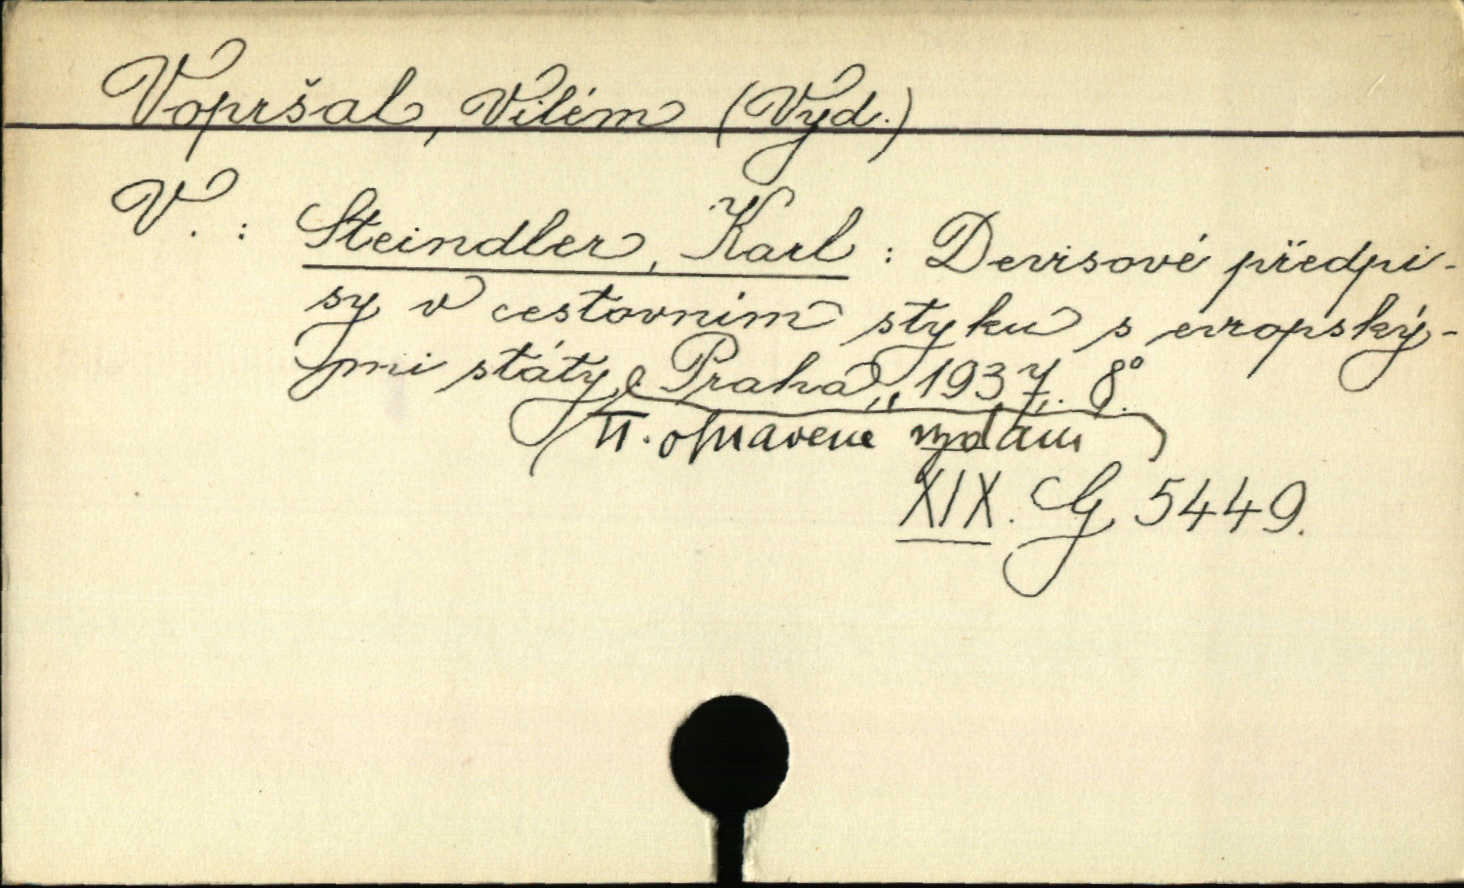 Vopršal, Vilém (Vyd.)
V. : Steindler, Karl : Devisové předpi-
sy v cestovním styku s evropský-
mi státy. Praha, 1937. 8°.
II. opravené vydání
XIX. G 5449.